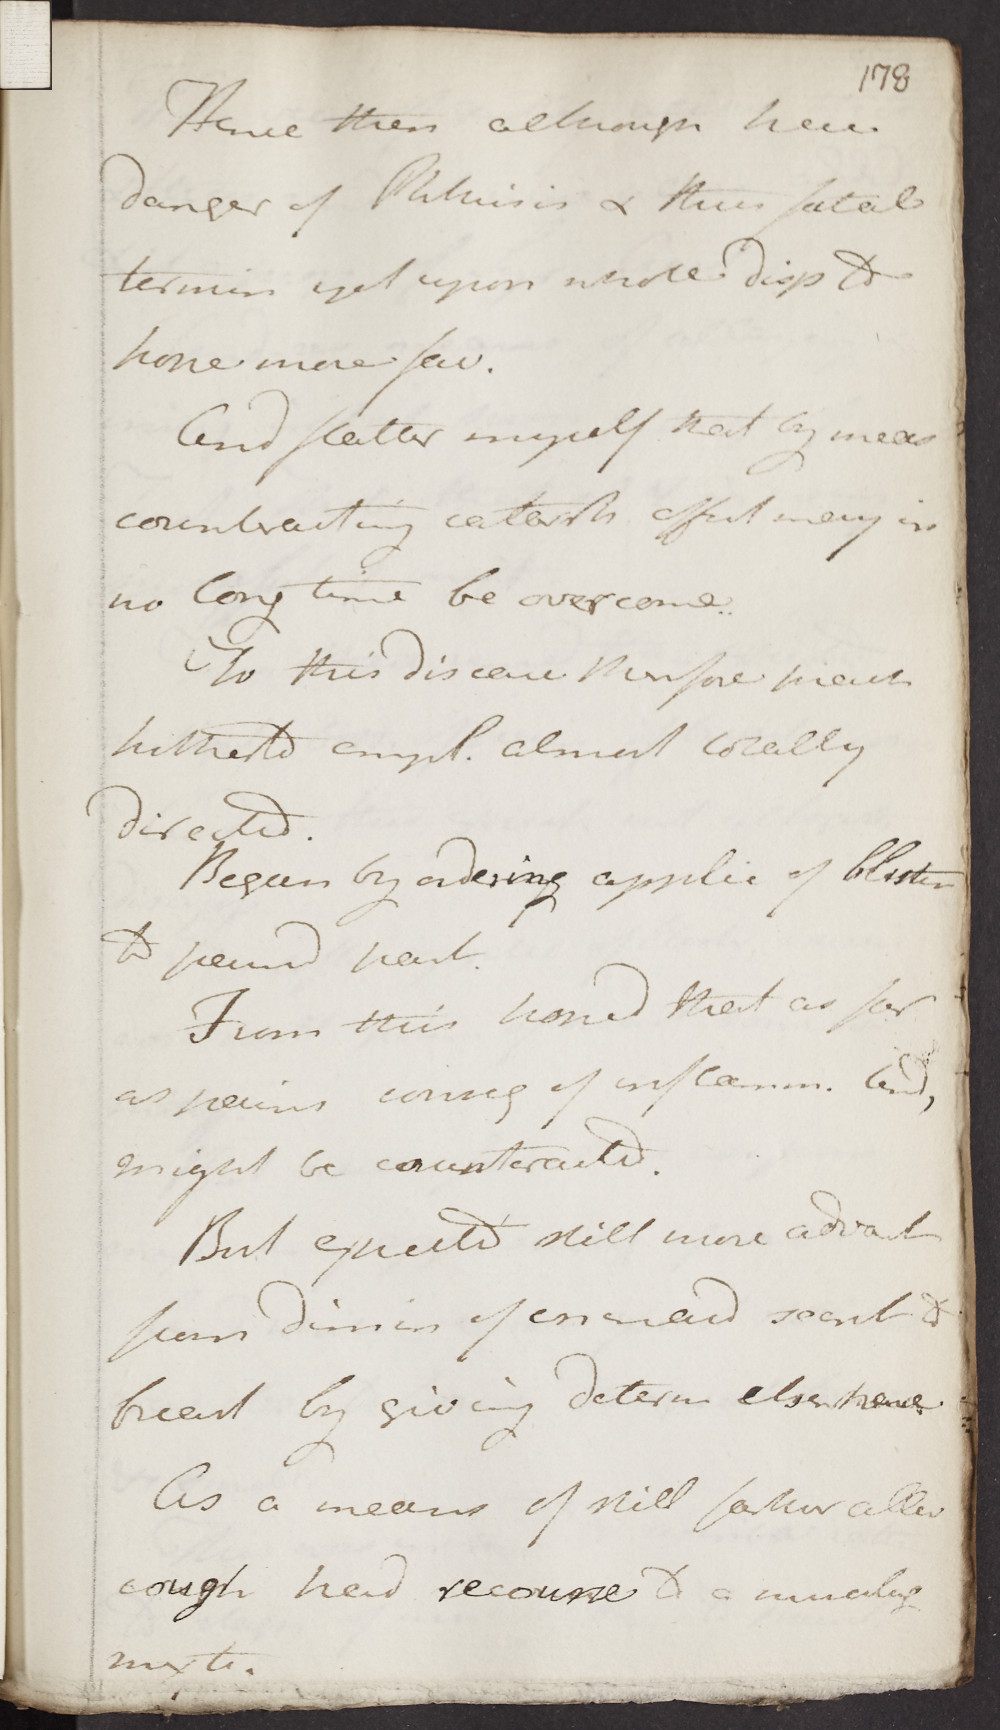 178
Hence then although here
danger of Phthisis & thus fatal
termin yet upon whole disp to
hope more fav.
And flatter myself that by means
countracting catarrh affect may in
no long time be overcome.
To this disease therefore means
hitherto empl. almost totally
directed.
Began by ordering applic of blister
to pained part.
From this hoped that as far
as pains conseq of inflamm. tend,
might be counteracted.
But expected still more advant
from dimin of increased secret to
breast by giving determ elsewhere
As a means of still farther allev
cough had recourse to a mucilag
mixte.